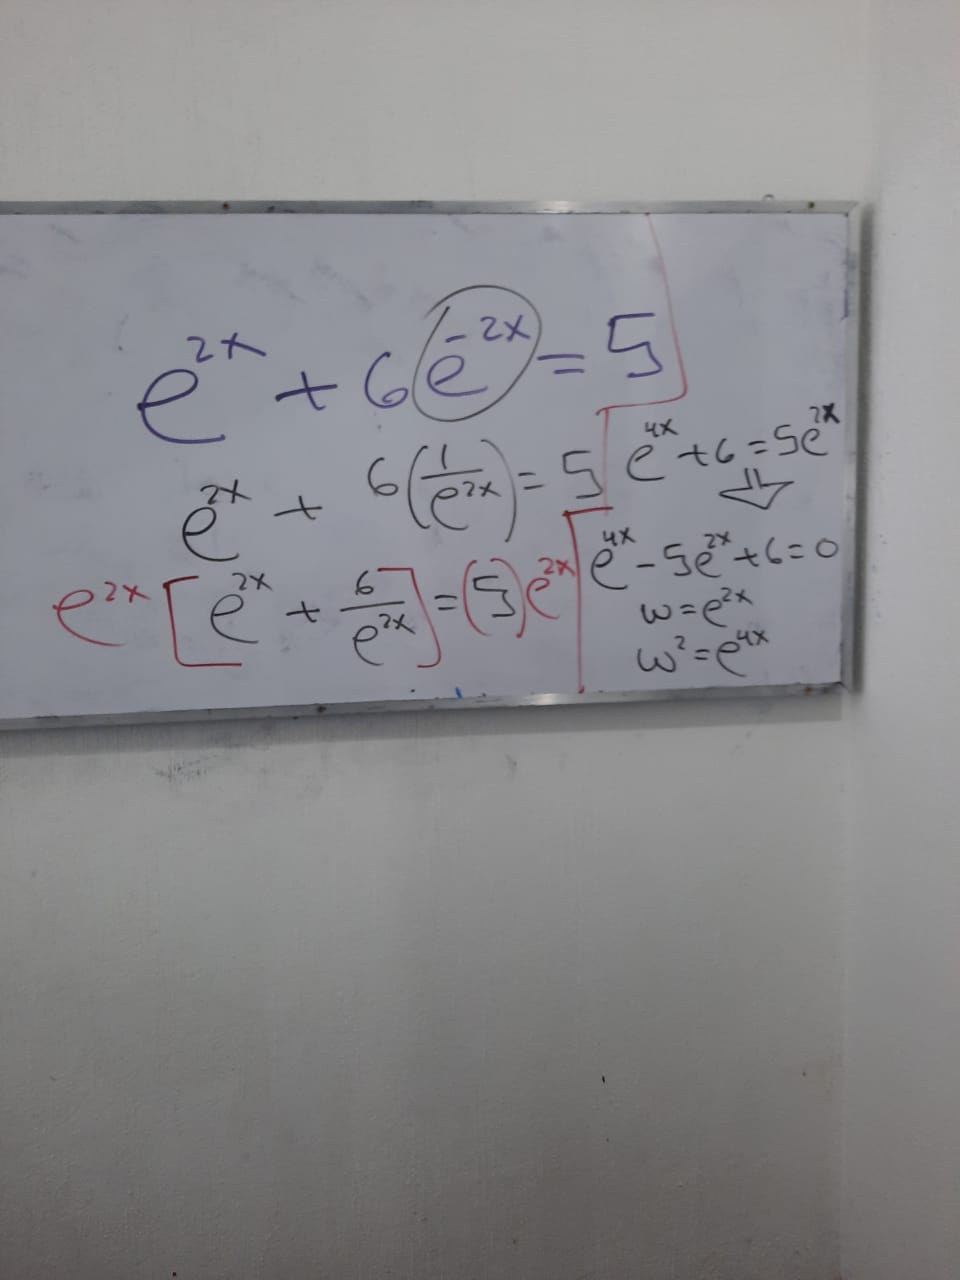 e^{2x} + 6e^{-2x} = 5
e^{2x} + 6(1/e^{2x}) = 5
e^{2x} [e^{2x} + 6/e^{2x}] = (5)e^{2x}
e^{4x} + 6 = 5e^{2x}
⇓
e^{4x} - 5e^{2x} + 6 = 0
w = e^{2x}
w² = e^{4x}